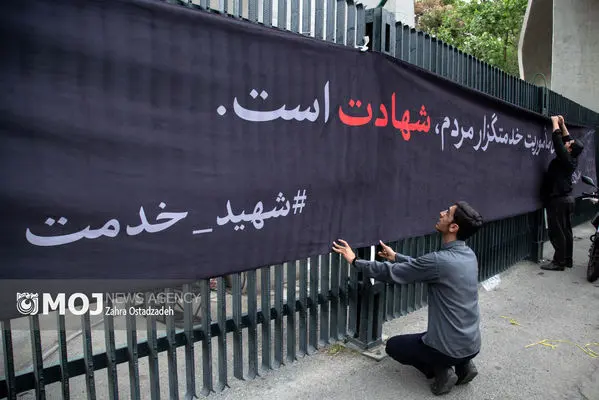 ماموریت خدمتگزار مردم، شهادت است.
#شهید_خدمت
MOJ NEWS AGENCY
Zahra Ostadzadeh